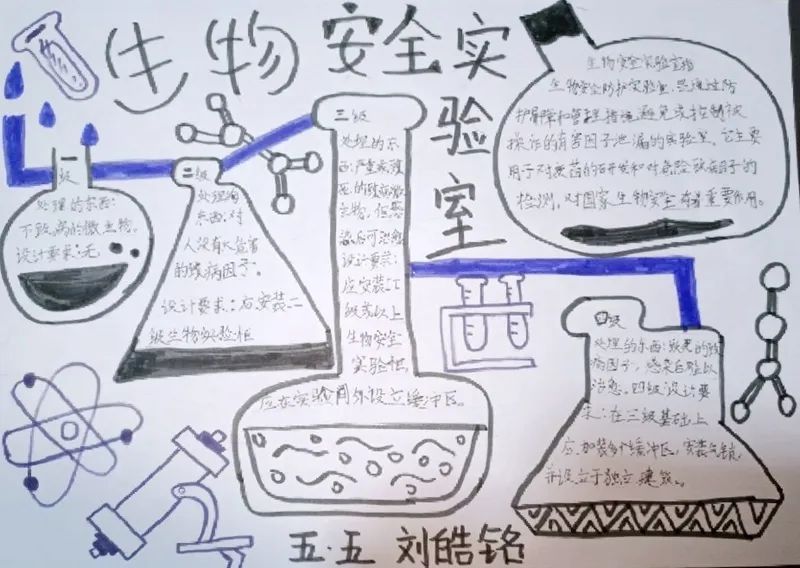 生物安全实
验
室
一级
处理的东西:
不致病的微生物。
设计要求:无
二级
处理的
东西:对
人没有大危害
的致病因子。
设计要求:应安装二
级生物实验柜
三级
处理的东
西:严重疾病
的致病微
生物,但感
染后可治愈
设计要求:
应安装二
级或以上
生物安全
实验柜,
应在实验周外设立缓冲区。
生物安全实验室指
生物安全防护实验室,是通过防
护屏障和管理措施避免或控制被
操作的有害因子泄漏的实验室,它主要
用于对疫苗的研发和对危险致病因子的
检测,对国家生物安全有着重要作用。
四级
处理的东西:致死的致
病因子,感染后难以
治愈。四级设计要
求:在三级基础上
应加装多个缓冲区,安装气锁,
并设立于独立建筑。
五·五 刘皓铭